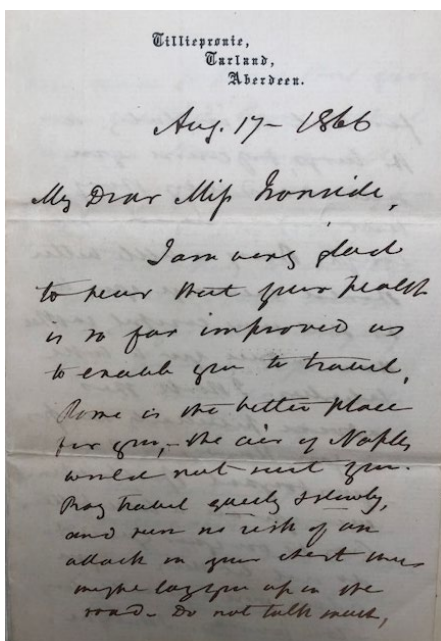 Tilliepronie,
Tarland,
Aberdeen.
Aug. 17 - 1866
My Dear Miss Ironside,
I am very glad
to hear that your health
is so far improved as
to enable you to travel.
Rome is the better place
for you, - the air of Naples
would not suit you.
Pray travel quietly & slowly,
and run no risk of an
attack in your chest
might lay you up on the
road - Do not talk much,